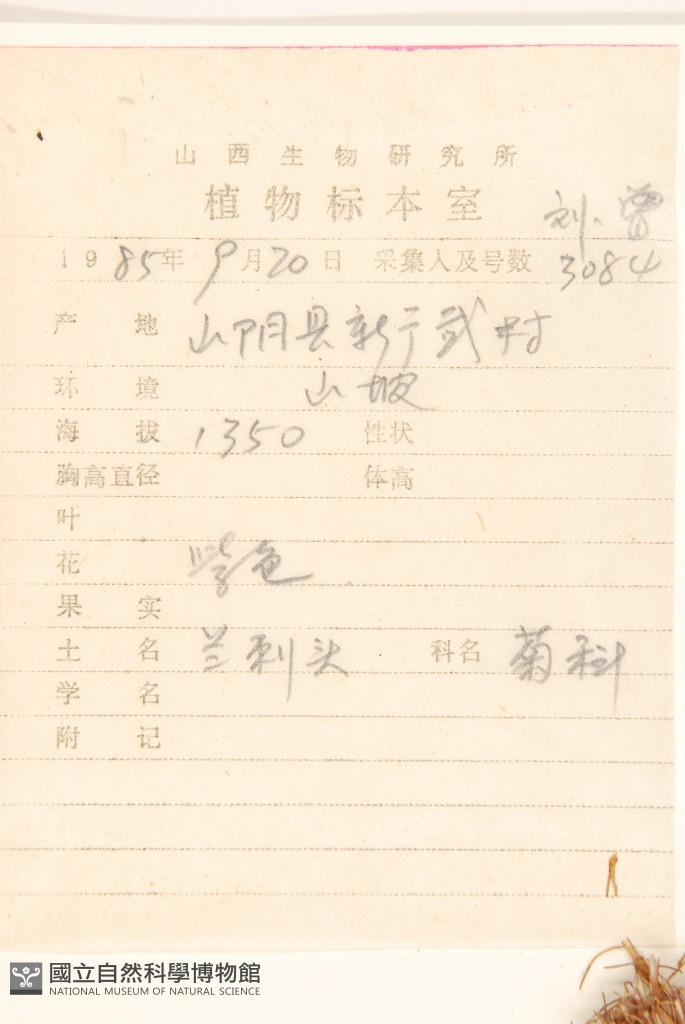 山西生物研究所
植物标本室
刘、曾
1985年9月20日 采集人及号数 3084
产地 山阴县新广武村
环境 山坡
海拔 1350 性状
胸高直径 体高
叶
花 紫色
果实
土名 兰刺头 科名 菊科
学名
附记
國立自然科學博物館
NATIONAL MUSEUM OF NATURAL SCIENCE